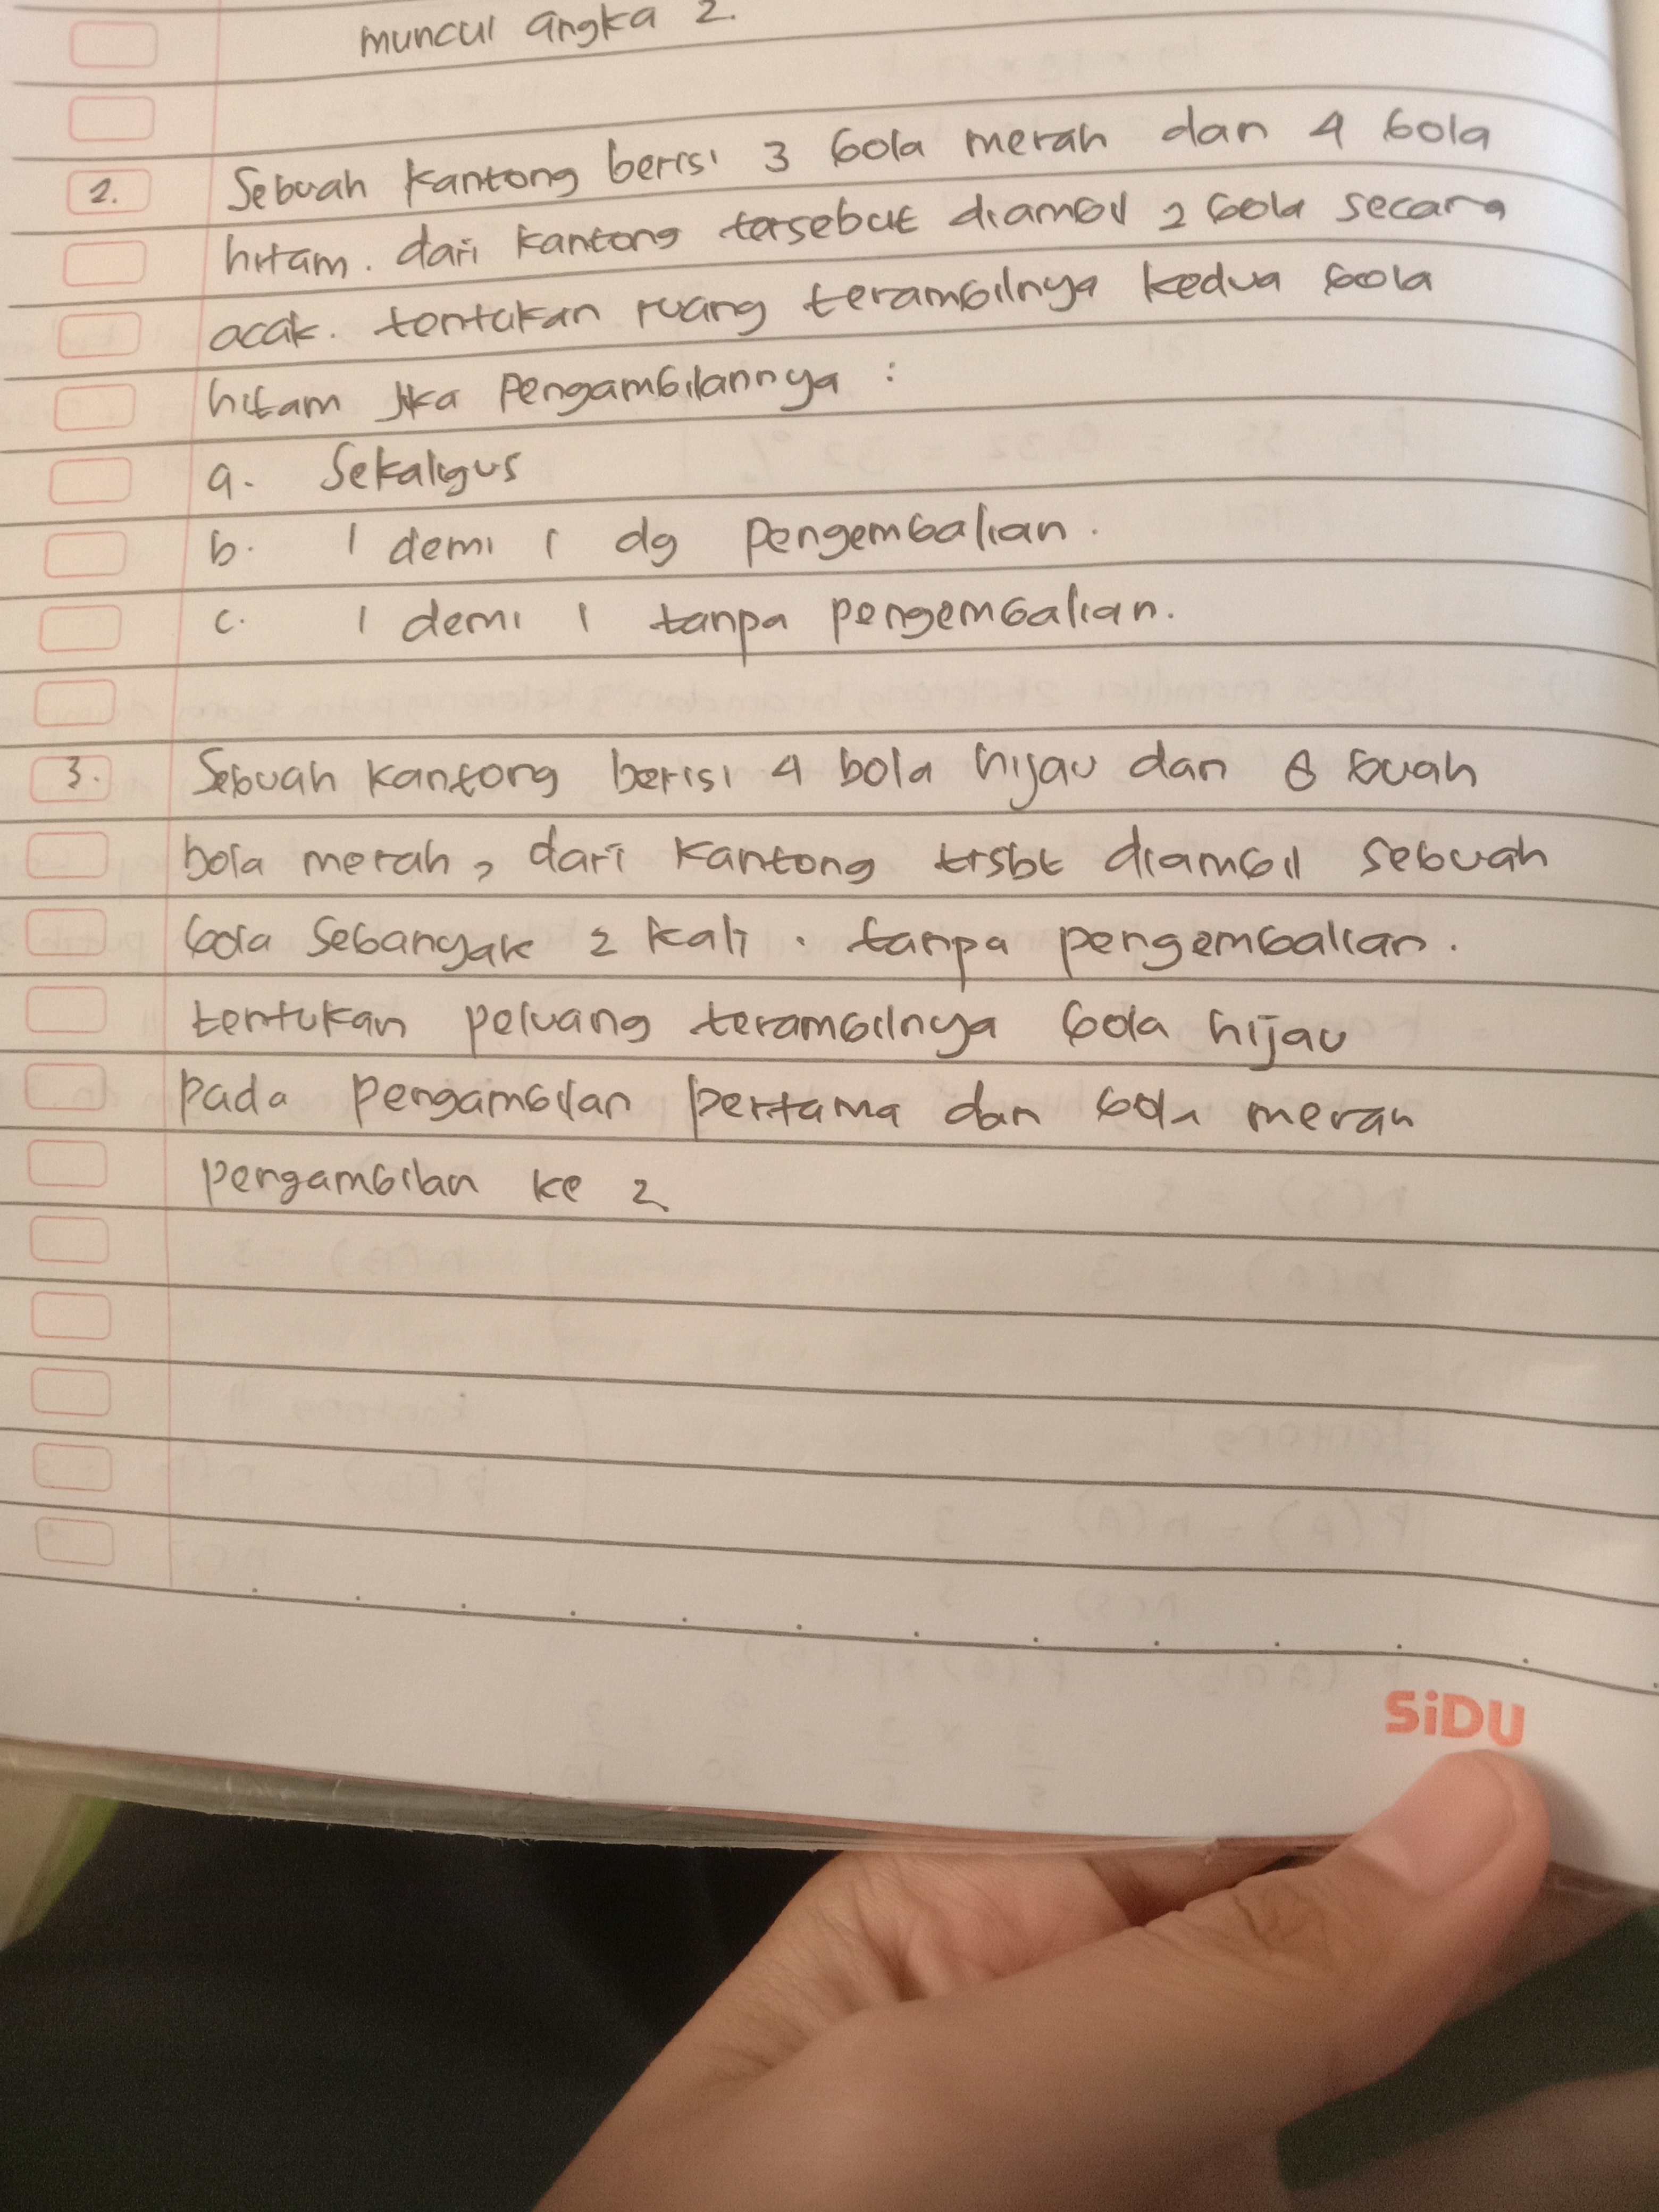 muncul angka 2.
2. Sebuah kantong berisi 3 bola merah dan 4 bola
hitam. dari kantong tersebut diambil 2 bola secara
acak. tentukan ruang terambilnya kedua bola
hitam jika pengambilannya :
a. Sekaligus
b. 1 demi 1 dg pengembalian.
c. 1 demi 1 tanpa pengembalian.
3. Sebuah kantong berisi 4 bola hijau dan 6 buah
bola merah, dari kantong trsbt diambil sebuah
bola sebanyak 2 kali. tanpa pengembalian.
tentukan peluang terambilnya bola hijau
pada pengambilan pertama dan bola merah
pengambilan ke 2
SiDU